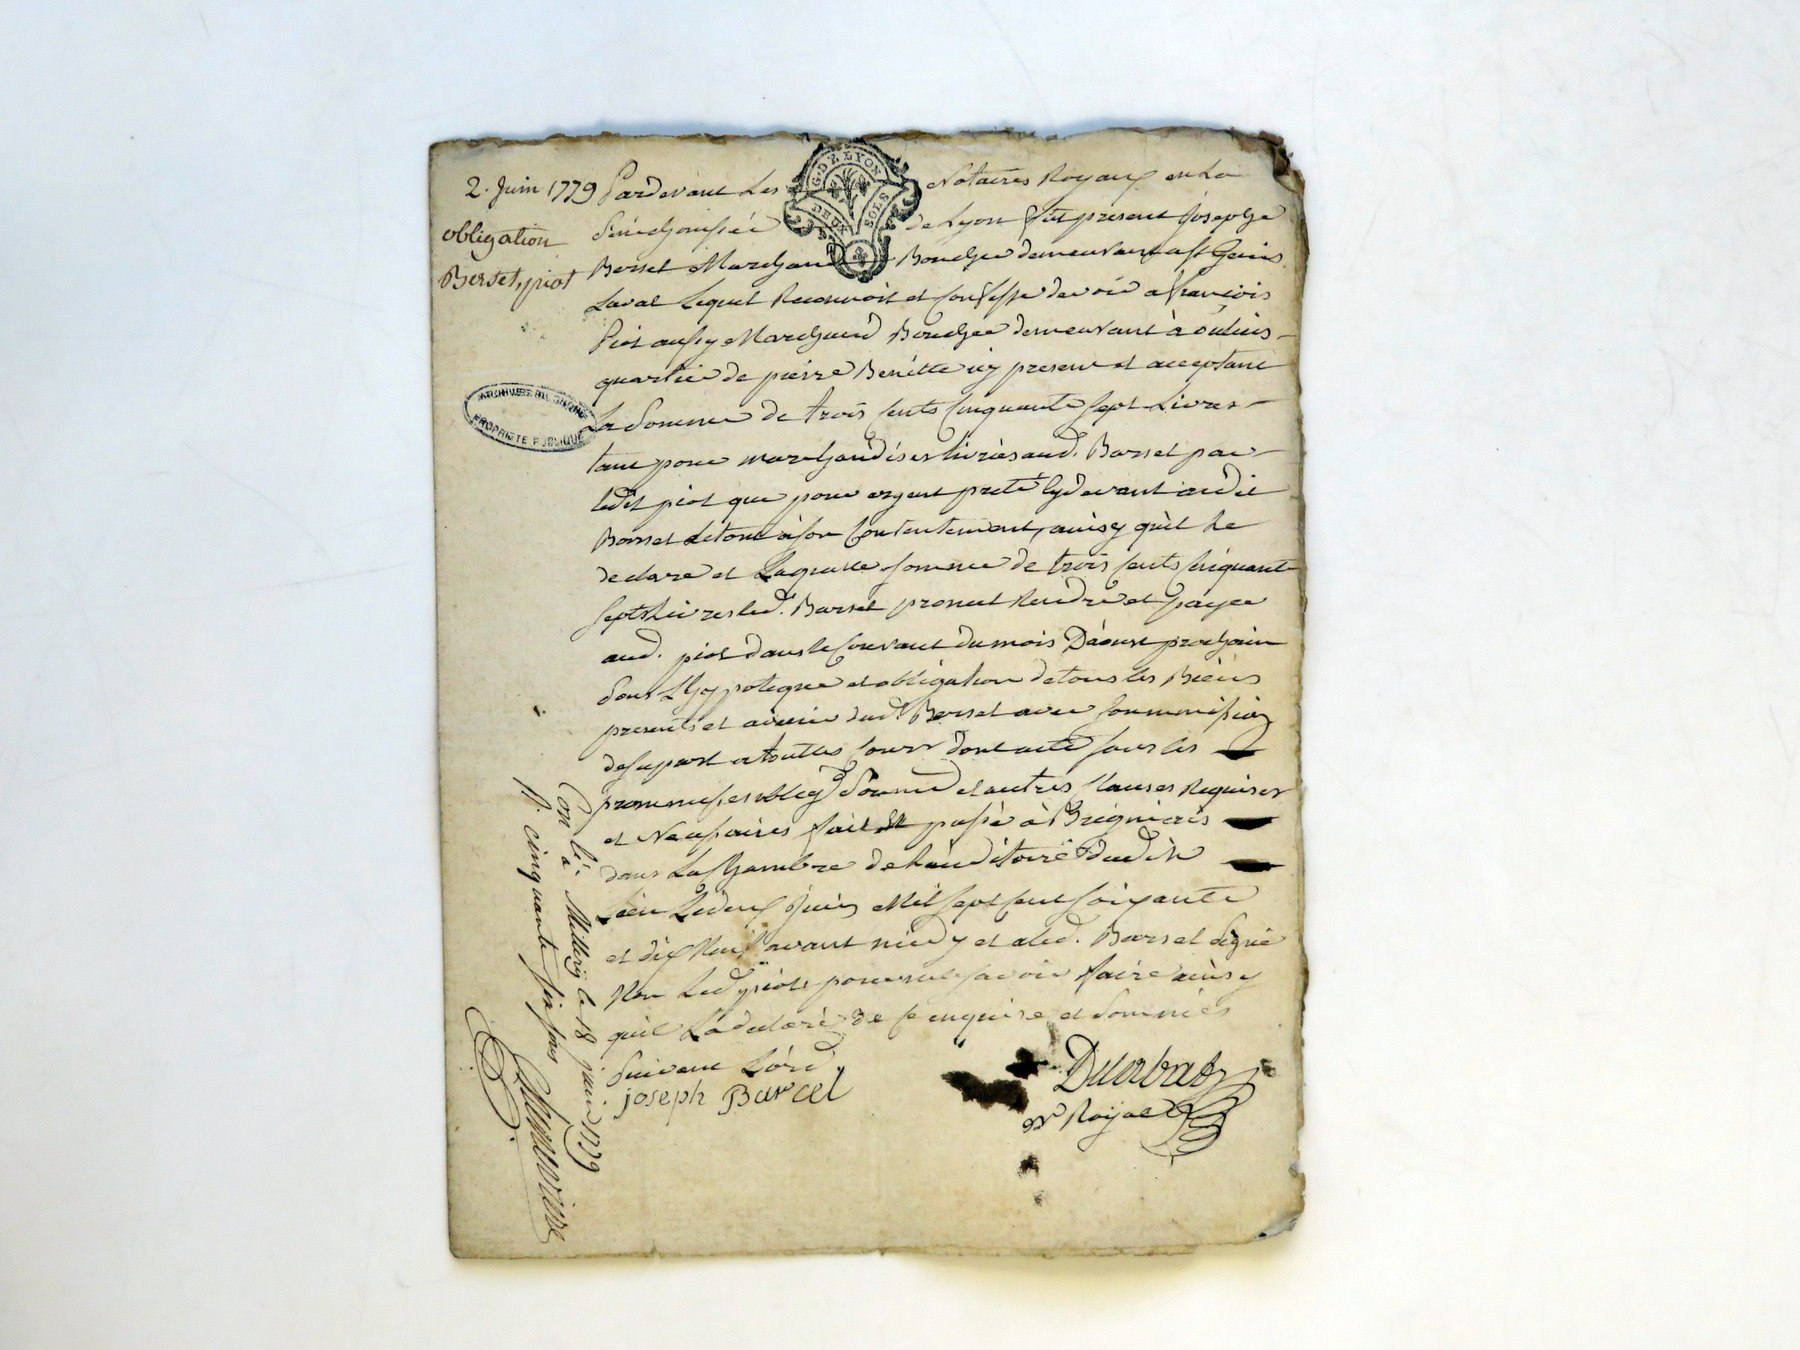 2. Juin 1779
obligation
Berset, piot
G. DE LYON
DEUX SOLS
Pardevant Les Notaires Royaux en La
Sénéchaussée de Lyon fut present Joseph
Berset Marchand Boucher demeurant a St Genis
Laval Lequel Reconnoit et Confesse devoir a françois
Piot aussy Marchand Boucher demeurant à oulins
quartier de pierre Benitte icy present et acceptant
La Somme de trois Cents Cinquante Sept Livres
tant pour marchandises livrées aud. Barset par
ledit piot que pour argent preté Cydevant audit
Barset detout à son Contentement, ainsy qu'il Le
declare et Laquelle somme de trois Cents Cinquante
Sept Livres led. Barset promet Rendre et payer
aud. piot dans le Courant du mois Daoust prochain
Sous L'hypoteque et obligation de tous les Biens
presents et avenir dud. Berset avec Soummission
de sa part a toutes Cours dont acte sous les
promesses oblig. Soumi et autres Clauses Requises
et Necessaires fait et passé à Brignieris
dans La Chambre de L'auditoire dudit
Lieu Le deux Juin Mil Sept Cent Soixante
et dix Neuf avant midy et a led. Barset Signé
Non Led. piot pour ne Savoir faire ainsy
quil La declaré de Ce enquise et Sommés
Suivant L'ord.
joseph Barcel
Nre Royal
ARCHIVES DU RHONE
PROPRIETE PUBLIQUE
Conlé. a Millery le 18 juin 1779
R. cinquante six sous